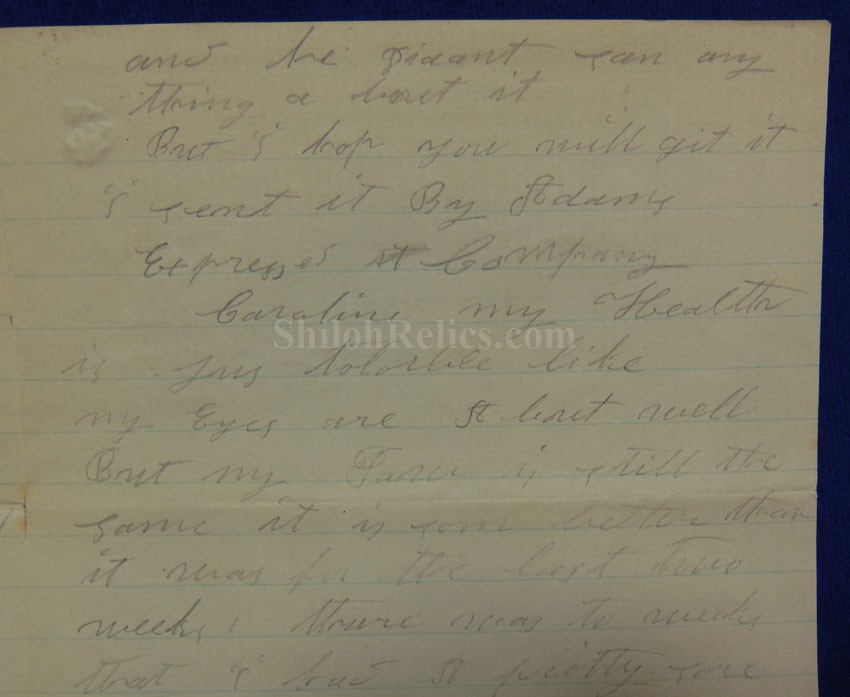 and he didant say any
thing a bout it
But I hop you will git it
I sent it By Adams
Express it Company
Caraline my Health
ShilohRelics.com
is jus tolorble like
my Eyes are A bout well
But my is still the
same it is som better than
it was for the last two
weeks thare was to weeks
that I had A pritty sore